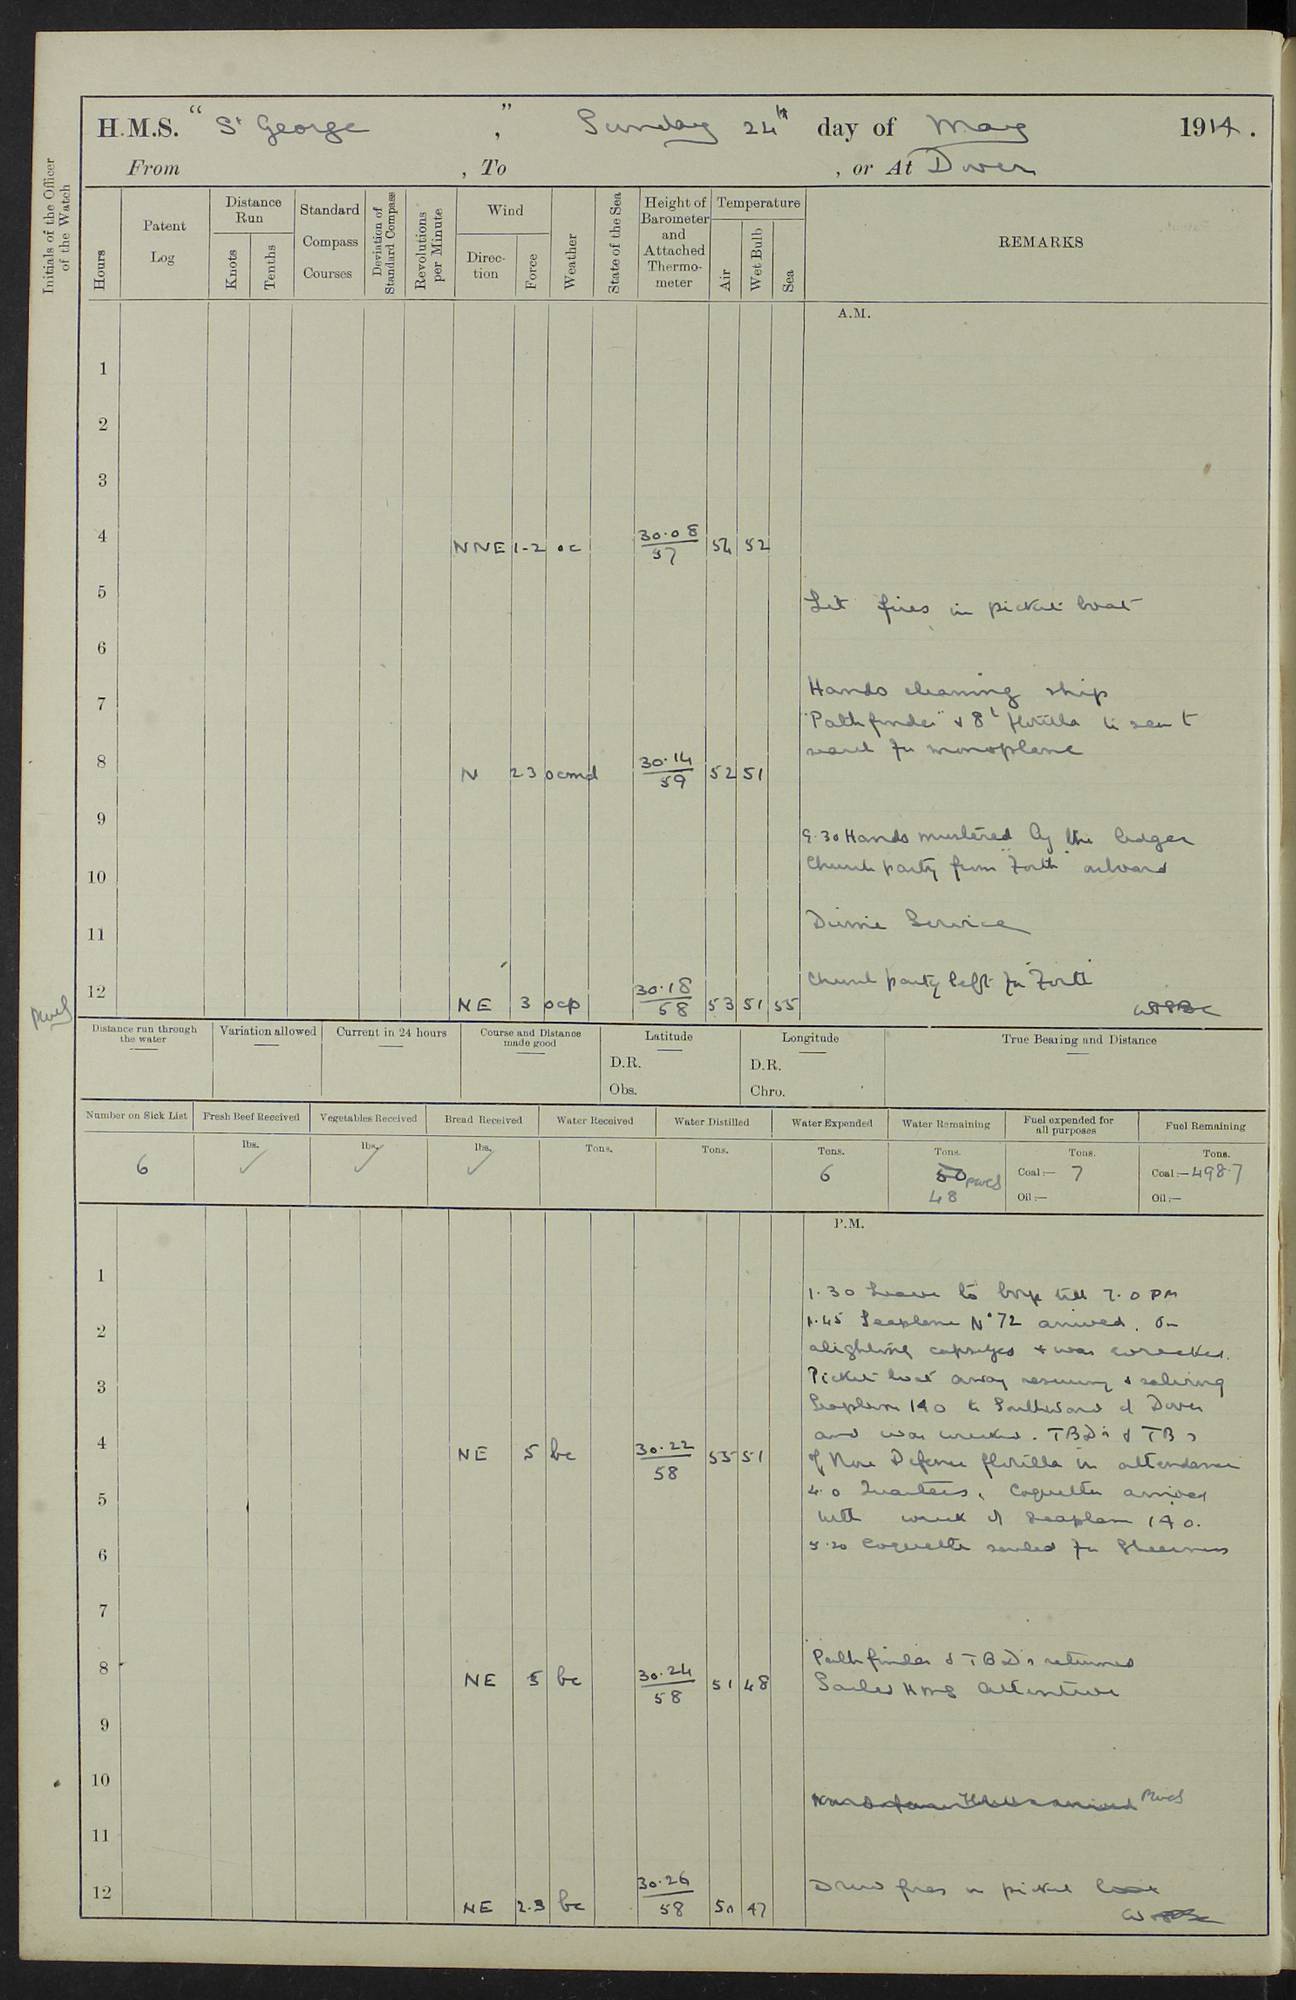 H.M.S. " St George " , Sunday 24th day of May 1914.
From , To , or At Dover
Initials of the Officer of the Watch
Hours
Patent Log
Distance Run
Knots
Tenths
Standard Compass Courses
Deviation of Standard Compass
Revolutions per Minute
Wind
Direction
Force
Weather
State of the Sea
Height of Barometer and Attached Thermometer
Temperature
Air
Wet Bulb
Sea
REMARKS
A.M.
1
2
3
4 NNE 1-2 oc 30.08 57 54 52
5 Lit fires in picket boat
6
Hands cleaning ship
7
"Pathfinder" & 8th flotilla to sea to
search for monoplane
8 N 2 3 ocmd 30.14 59 52 51
9
9.30 Hands mustered by the ledger
10 Church party from "Forth" onboard
11 Divine Service
Church party left for "Forth"
12 NE 3 ocp 30.18 58 53 51 55
Distance run through the water
Variation allowed
Current in 24 hours
Course and Distance made good
Latitude
D.R.
Obs.
Longitude
D.R.
Chro.
True Bearing and Distance
Number on Sick List
Fresh Beef Received
Vegetables Received
Bread Received
Water Received
Water Distilled
Water Expended
Water Remaining
Fuel expended for all purposes
Fuel Remaining
6
lbs. ✓
lbs. ✓
lbs. ✓
Tons.
Tons.
Tons. 6
Tons. 50 48
Tons. Coal:— 7 Oil:—
Tons. Coal:— 498.7 Oil:—
P.M.
1
1.30 Leave to boys till 7.0 PM
2 1.45 Seaplane No 72 arrived. On
alighting capsized & was wrecked.
3 Picket boat away rescuing & salving
Seaplane 140 to Southward of Dover
and was wrecked. TBD's & TBs
4 NE 5 bc 30.22 58 55 51
of Nore Defence flotilla in attendance
5 4.0 Quarters. Coquette arrived
with wreck of Seaplane 140.
6 5.20 Coquette sailed for Sheerness
7
Pathfinder & TBDs returned
8 NE 5 bc 30.24 58 51 48
Sailed HMS Attentive
9
10
11
12 NE 2.3 bc 30.26 58 50 47
Drew fires in picket boat